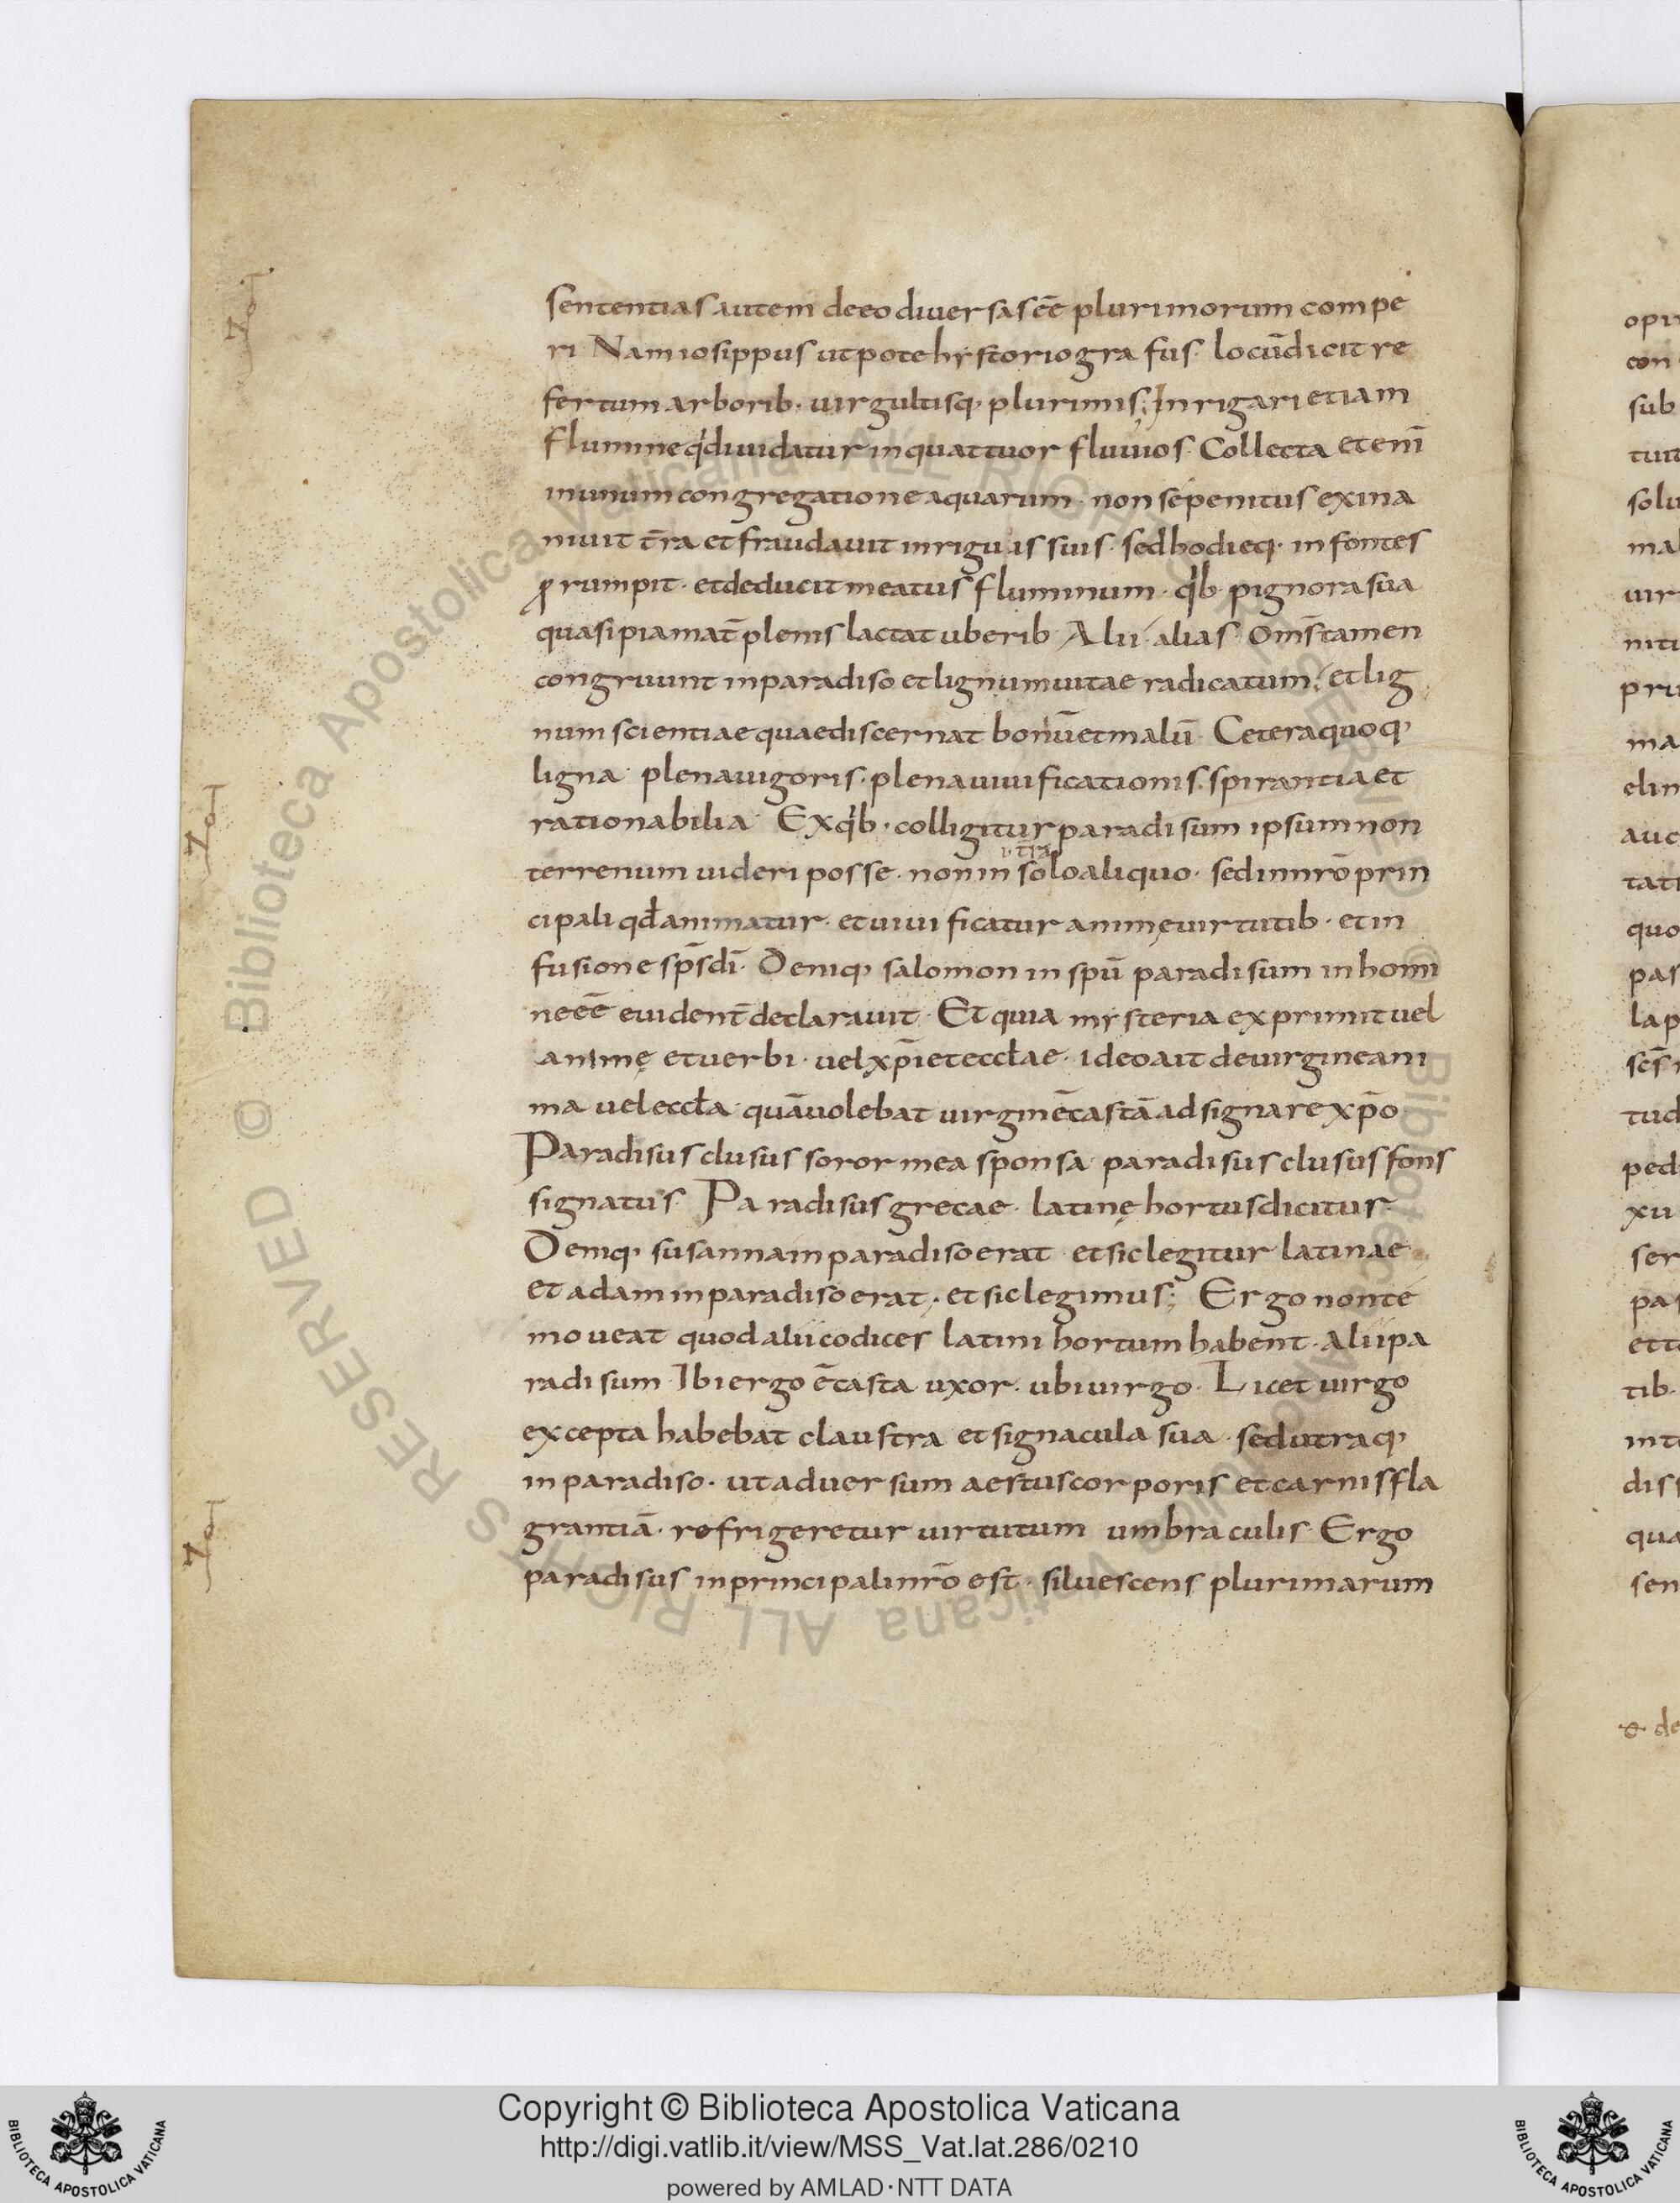 sententias autem de eo diuersas eē plurimorum compe
ri Nam iosippus utpote hystoriografus· locū dicit re
fertum arborib· uirgultisq· plurimis; Inrigari etiam
flumine qd diuidatur in quattuor fluuios· Collecta etenī
in unum congregatione aquarum· non se penitus exina
niuit t̄ra et fraudauit inriguis suis· sed hodieq· in fontes
ꝓrumpit· et deducit meatus fluminum· qib· pignora sua
quasi pia mat̄ plenis lactat uberib· Alii alias Om̄s tamen
congruunt in paradiso et lignum uitae radicatum; et lig
num scientiae quae discernat bonū et malū· Cetera quoq·
ligna plena uigoris· plena uiuificationis· spirantia et
rationabilia· Ex qib· colligitur paradisum ipsum non
terrenum uideri posse· non in solo aliquo· sed in nr̄o prin
cipali qđ animatur· et uiuificatur animę uirtutib· et in
fusione sp̄s dī· Deniq· salomon in spū paradisum in homi
ne eē euident̄ declarauit· Et quia mysteria exprimit uel
animę et uerbi· uel xp̄i et eccłae· ideo ait de uirgine ani
ma uel eccła quā uolebat uirginē castā adsignare xp̄o
Paradisus clusus soror mea sponsa paradisus clusus fons
signatus· Paradisus grecae· latinę hortus dicitus·
Deniq· susanna in paradiso erat et sic legitur latinae
et adam in paradiso erat· et sic legimus; Ergo non te
moueat quod alii codices latini hortum habent· alii pa
radisum Ibi ergo ē casta uxor· ubi uirgo· Licet uirgo
excepta habebat claustra et signacula sua· sed utraq·
in paradiso· ut aduersum aestus corporis et carnis fla
grantiā· refrigeretur uirtutum umbraculis· Ergo
paradisus in principali nr̄o est· siluescens plurimarum
Copyright © Biblioteca Apostolica Vaticana
http://digi.vatlib.it/view/MSS_Vat.lat.286/0210
powered by AMLAD·NTT DATA
BIBLIOTECA APOSTOLICA VATICANA
BIBLIOTECA APOSTOLICA VATICANA